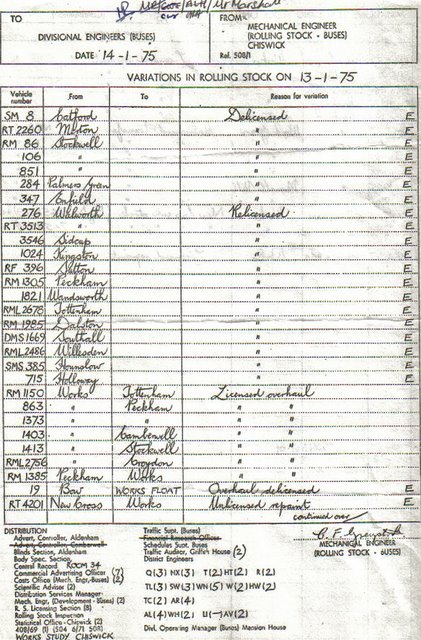 Mr Marshall
TO
FROM
DIVISIONAL ENGINEERS (BUSES)
MECHANICAL ENGINEER
(ROLLING STOCK - BUSES)
CHISWICK
DATE 14-1-75
Ref. 508/1
VARIATIONS IN ROLLING STOCK ON 13-1-75
Vehicle number From To Reason for variation
SM 8 Catford Delicensed E
RT 2260 Merton " E
RM 86 Stockwell " E
106 " " E
851 " " E
284 Palmers Green " E
347 Enfield " E
276 Walworth Relicensed E
RT 3513 " " E
3546 Sidcup " E
1024 Kingston " E
RF 396 Sutton " E
RM 1305 Peckham " E
1821 Wandsworth " E
RML 2678 Tottenham " E
RM 1985 Dalston " E
DMS 1669 Southall " E
RML 2486 Willesden " E
SMS 385 Hounslow " E
715 Holloway " E
RM 1150 Works Tottenham Licensed overhaul
863 " Peckham " "
1373 " " " "
1403 " Camberwell " "
1413 " Stockwell " "
RML 2756 " Croydon " "
RM 1385 Peckham Works " "
19 Bow WORKS FLOAT Overhaul delicensed E
RT 4201 New Cross Works Unlicensed repaint E
continued over
DISTRIBUTION
Advert. Controller, Aldenham
Advert. Controller, Camberwell
Blinds Section, Aldenham
Body Spec. Section
Central Record ROOM 34
Commercial Advertising Officer (7)
Costs Office (Mech. Engr.-Buses) (2)
Scientific Adviser (2)
Distribution Services Manager-
Mech. Engr. (Development - Buses) (2)
R. S. Licensing Section (8)
Rolling Stock Inspection
Statistical Office - Chiswick (2)
408/69 (1) 504 6/71 508)
WORKS STUDY CHISWICK
Traffic Supt. (Buses)
Financial Research Officer
Schedules Supt. Buses
Traffic Auditor, Griffith House (2)
District Engineers
Q (3) NX (3) T (2) HT (2) R (2)
TL (3) SW (3) WN (5) W (2) HW (2)
TC (2) AR (4)
AL (4) WH (2) U (-) AV (2)
Divl. Operating Manager (Buses) Mansion House
MECHANICAL ENGINEER
(ROLLING STOCK - BUSES)